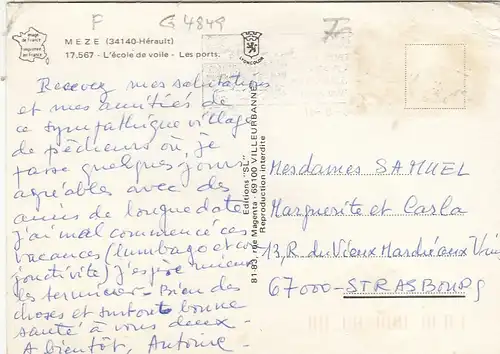 F G 4849
image de France
imprimée en France
MEZE (34140-Hérault)
17.567 - L'école de voile - Les ports.
LYONCOLOR
Recevez mes salutations
et mes amitiés de
ce sympathique village
de pêcheurs où, je
passe quelques jours
agréables avec des
amis de longue date
J'ai mal commencé ces
vacances (lumbago et con
jonctivité) j'espère mieux
les terminer - Bien des
choses et surtout bonne
santé à vous deux -
A bientôt, Antoine -
Editions "SL"
81-83, rue Magenta - 69100 VILLEURBANNE
Reproduction interdite
Mesdames SAMUEL
Marguerite et Carla
13, R. du Vieux Marché aux Vins
67000 - STRASBOURG